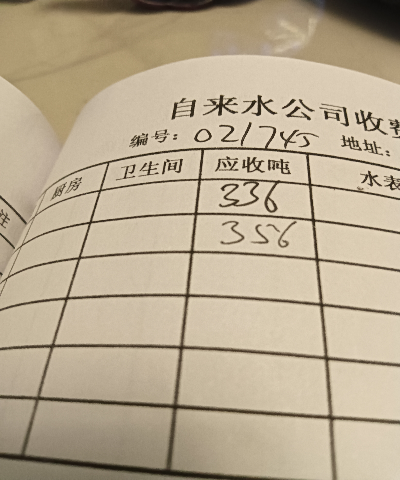 自来水公司收费
编号: 021745 地址:
注 厨房 卫生间 应收吨 水表
336
356